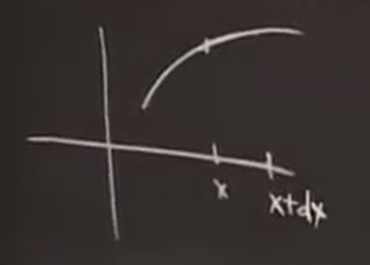 x
x+dx